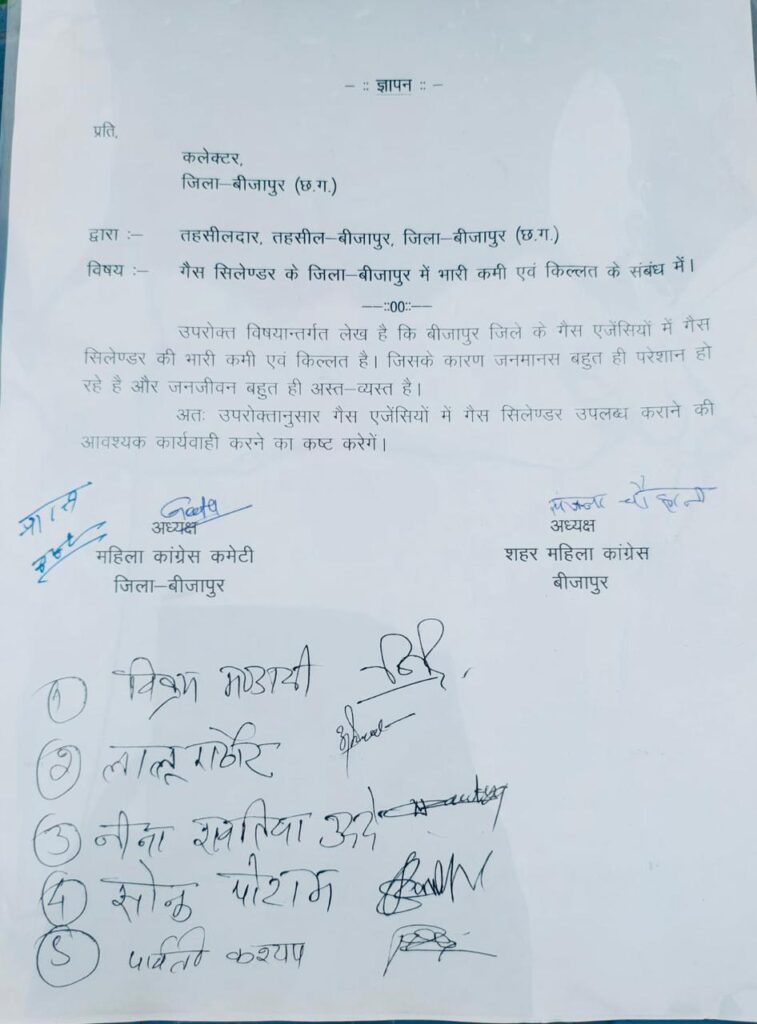 – :: ज्ञापन :: –
प्रति,
कलेक्टर,
जिला–बीजापुर (छ.ग.)
द्वारा :– तहसीलदार, तहसील–बीजापुर, जिला–बीजापुर (छ.ग.)
विषय :– गैस सिलेण्डर के जिला–बीजापुर में भारी कमी एवं किल्लत के संबंध में।
––::00::––
उपरोक्त विषयान्तर्गत लेख है कि बीजापुर जिले के गैस एजेंसियों में गैस
सिलेण्डर की भारी कमी एवं किल्लत है। जिसके कारण जनमानस बहुत ही परेशान हो
रहे है और जनजीवन बहुत ही अस्त–व्यस्त है।
अतः उपरोक्तानुसार गैस एजेंसियों में गैस सिलेण्डर उपलब्ध कराने की
आवश्यक कार्यवाही करने का कष्ट करेगें।
Geeta
अध्यक्ष अध्यक्ष
महिला कांग्रेस कमेटी शहर महिला कांग्रेस
जिला–बीजापुर बीजापुर
1 विक्रम मण्डावी
2 लालू राठौर
3 नीना
4 सोनू पोटाम
5 पार्वती कश्यप